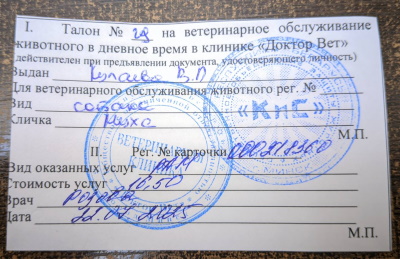 I. Талон № 29 на ветеринарное обслуживание
животного в дневное время в клинике «Доктор Вет»
(действителен при предъявлении документа, удостоверяющего личность)
Выдан В.П
Для ветеринарного обслуживания животного рег. №
Вид собака
Кличка Муха
М.П.
II. Рег. № карточки 000212360
Вид оказанных услуг
Стоимость услуг 16,50
Врач
Дата 2025
М.П.
«КиС»
ВЕТЕРИНАРНАЯ
КЛИНИКА